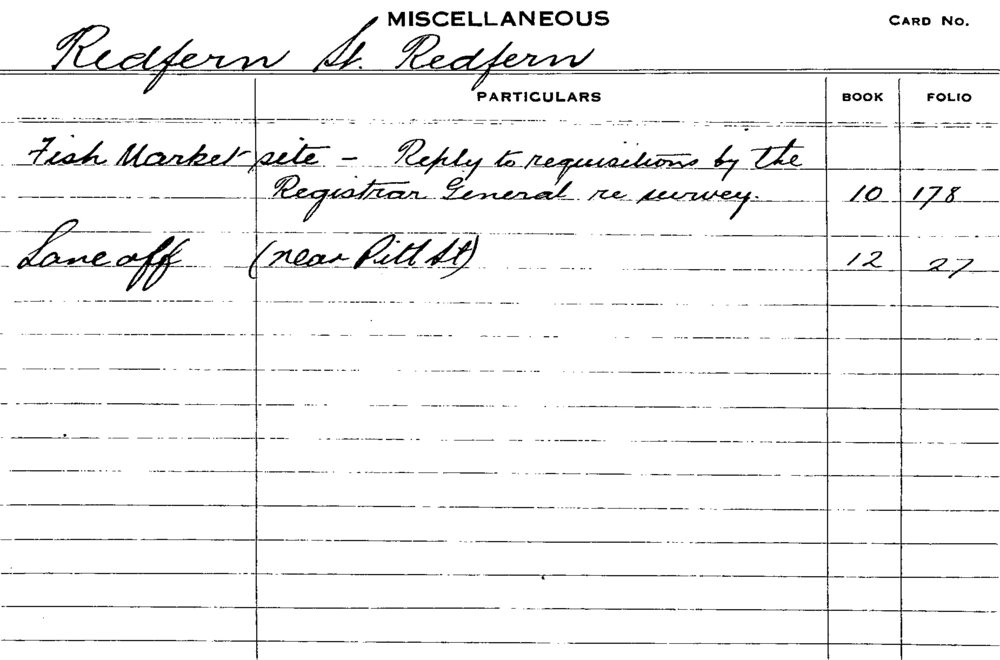 MISCELLANEOUS CARD NO.
Redfern St. Redfern
PARTICULARS BOOK FOLIO
Fish Market site - Reply to requisitions by the
Registrar General re survey. 10 178
Lane off (near Pitt St) 12 27